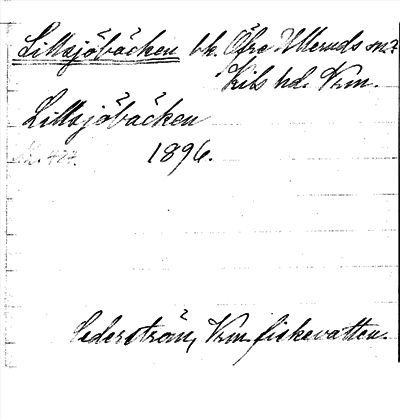 Lillsjöbäcken bk. Öfre Ulleruds sn?
Kils hd. Vrm.
Lillsjöbäcken
1896.
Cederström, Vrm. fiskevatten.